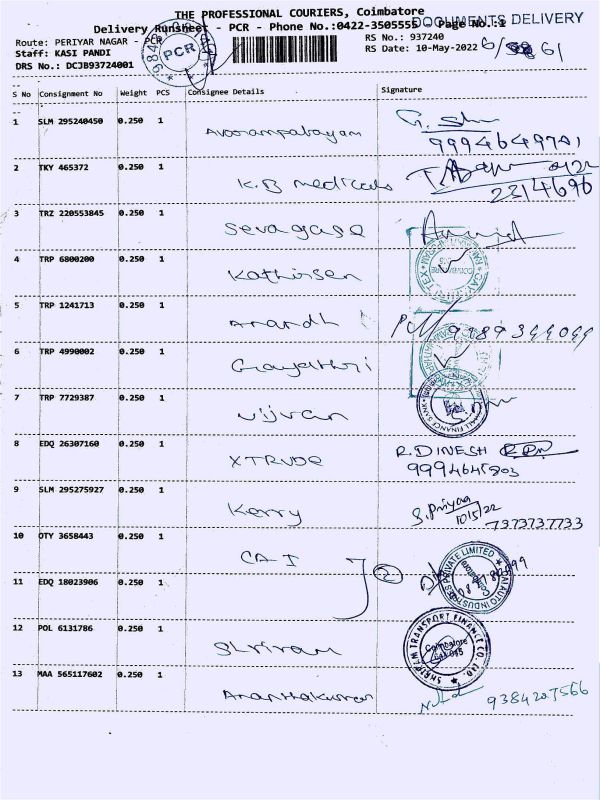 THE PROFESSIONAL COURIERS, Coimbatore
Delivery Runsheet - PCR - Phone No.:0422-3505555 Page No.:
DOCUMENTS DELIVERY
Route: PERIYAR NAGAR - PCR
RS No.: 937240
Staff: KASI PANDI
RS Date: 10-May-2022
61
DRS No.: DCJB93724001
PCR
S No Consignment No Weight PCS Consignee Details Signature
1 SLM 295240450 0.250 1
2 TKY 465372 0.250 1 K.B medicals
2314696
3 TRZ 220553845 0.250 1 Sevagase
4 TRP 6800200 0.250 1 Kathirsen
5 TRP 1241713 0.250 1 Anandh
6 TRP 4990002 0.250 1 Gayathri
7 TRP 7729387 0.250 1
8 EDQ 26307160 0.250 1 XTRUDE R.DINESH
9 SLM 295275927 0.250 1 Kerry S.Priyaa
10/5/22
7373737733
10 OTY 3658443 0.250 1 CA I
2
11 EDQ 18023906 0.250 1
12 POL 6131786 0.250 1 Shriram
SHRIRAM TRANSPORT FINANCE CO. LTD.
Coimbatore
13 MAA 565117602 0.250 1 Ananthakumar
9384207566